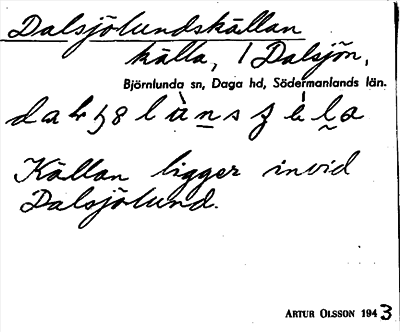 Dalsjölundskällan
källa, / Dalsjön,
Björnlunda sn, Daga hd, Södermanlands län.
Källan ligger invid
Dalsjölund.
ARTUR OLSSON 1943